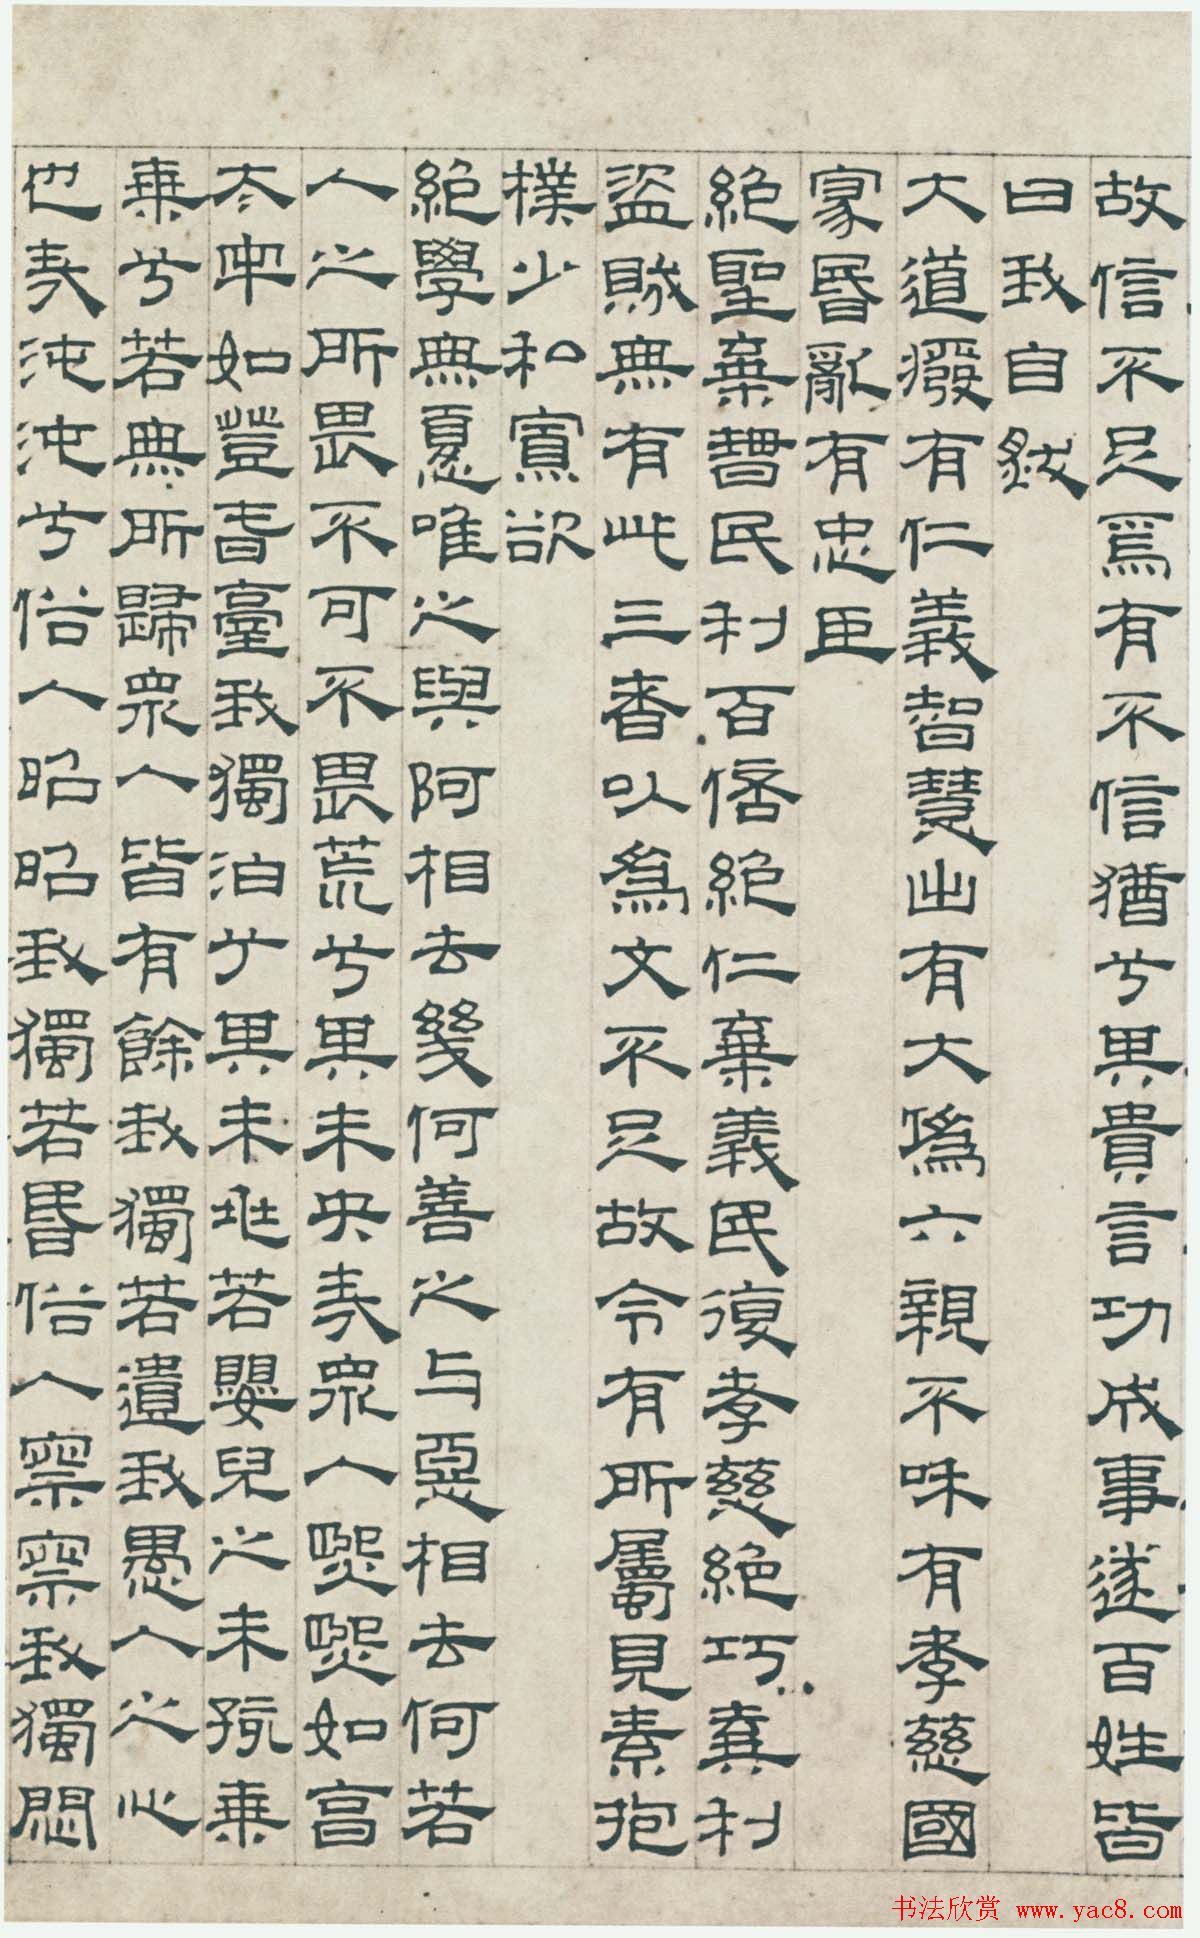 故信不足焉有不信猶兮其貴言功成事遂百姓皆
曰我自然
大道癈有仁義智慧出有大偽六親不咊有孝慈國
家昬亂有忠臣
絕聖棄智民利百倍絕仁棄義民復孝慈絕巧棄利
盜賊無有此三者以為文不足故令有所屬見素抱
樸少私寡欲
絕學無憂唯之與阿相去幾何善之与惡相去何若
人之所畏不可不畏荒兮其未央哉衆人熙熙如享
太牢如登春臺我獨泊兮其未兆若嬰兒之未孩乘
乘兮若無所歸衆人皆有餘我獨若遺我愚人之心
也哉沌沌兮俗人昭昭我獨若昬俗人察察我獨悶
书法欣赏 www.yac8.com